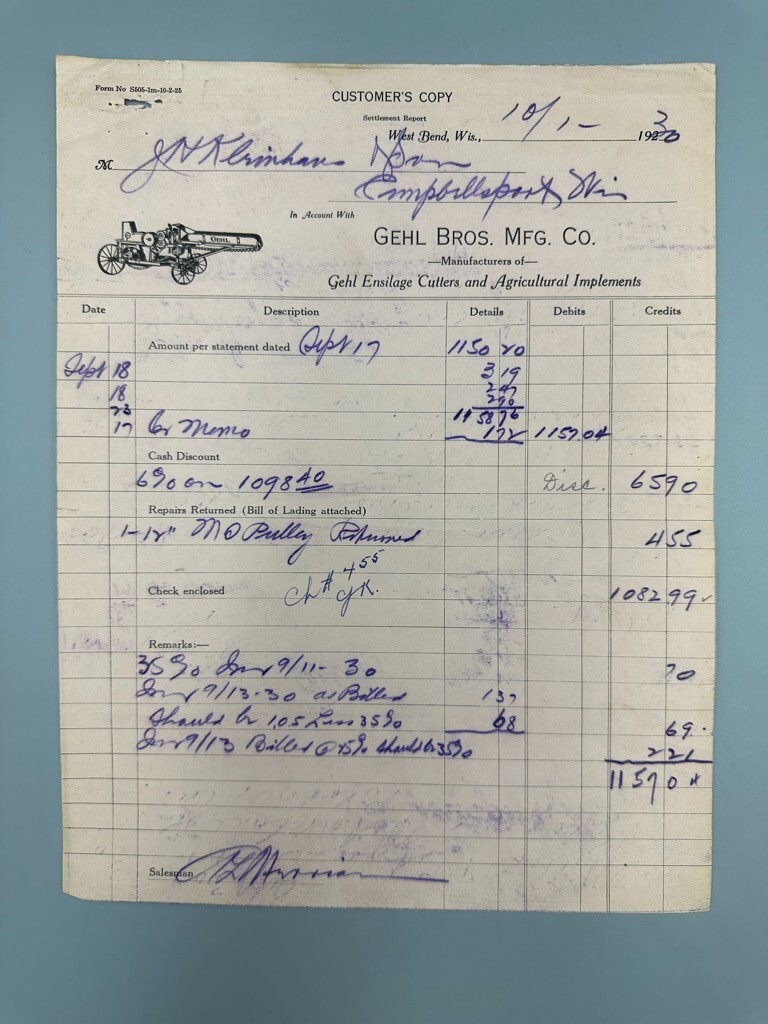 Form No S505-1m-10-2-25
CUSTOMER'S COPY
Settlement Report
West Bend, Wis., 10/1- 1930
M J H Kleinhans & Son
Campbellsport, Wis
In Account With
GEHL
GEHL BROS. MFG. CO.
—Manufacturers of—
Gehl Ensilage Cutters and Agricultural Implements
Date Description Details Debits Credits
Amount per statement dated Sept 17 1150 20
Sept 18 3 19
18 2 47
23 2 90
1158 76
17 Cr Memo 1 72 1157 04
Cash Discount
6% on 1098 40 Disc. 65 90
Repairs Returned (Bill of Lading attached)
1-12" M D Pulley Returned 4 55
Ch # 4 55
Check enclosed 1082 99 ✓
Remarks:—
35% Inv 9/11-30 70
Inv 9/13-30 as Billed 1 37
Should be 1.05 Less 35% 68 69
Inv 9/13 Billed @ 45% should be 35% 2 21
1157 04
Salesman